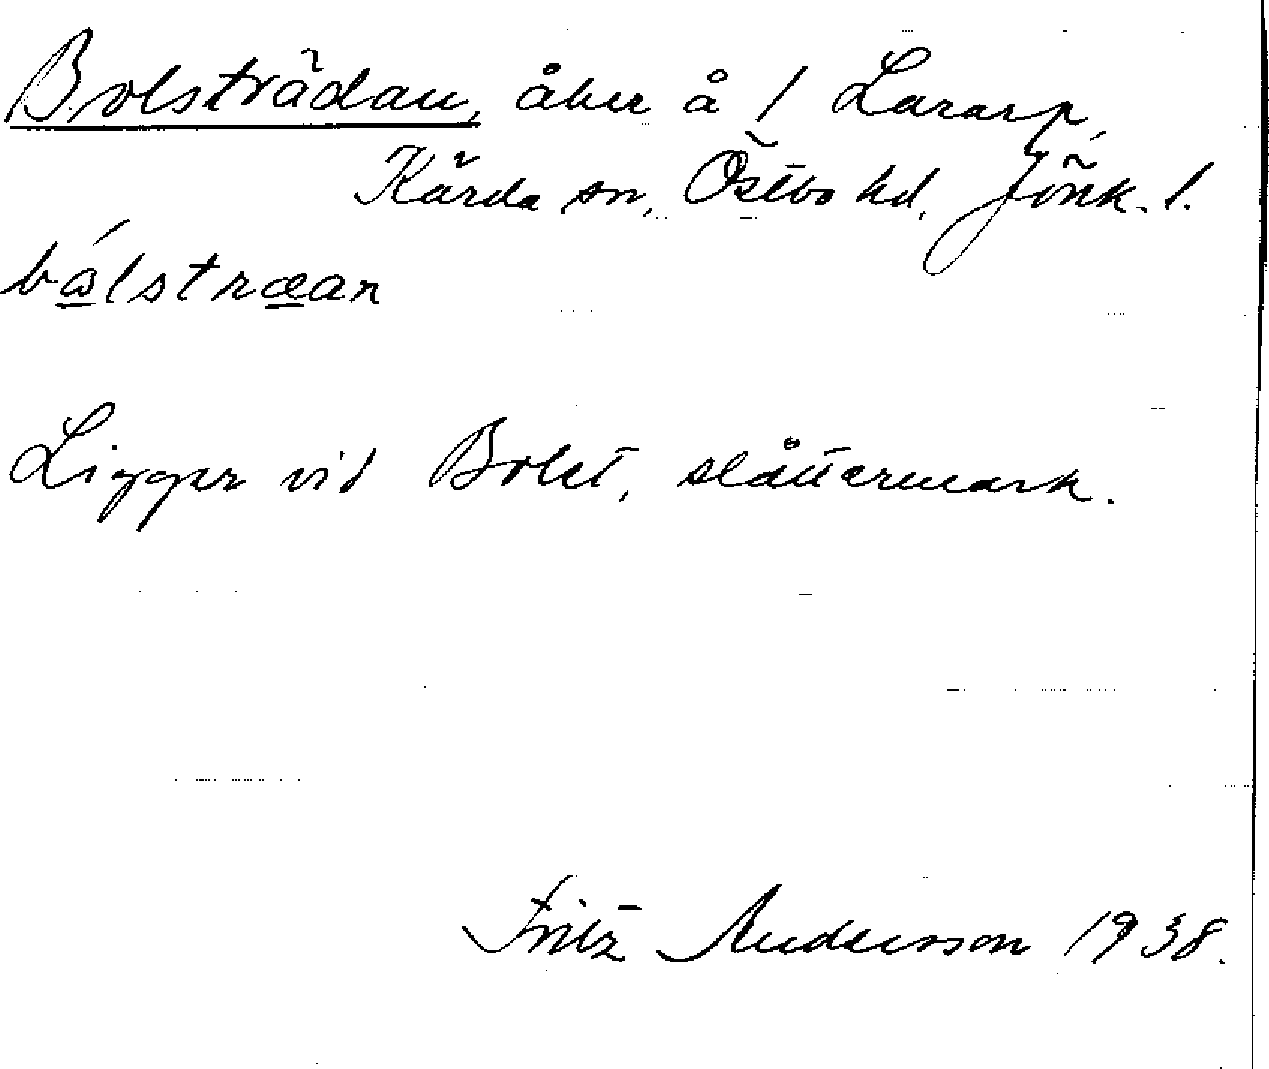 Bolsträdan, åker å 1 Lararp,
Kärda sn, Östbo hd, Jönk. l.
bálstræan
Ligger vid Bolet, slåttermark.
Fritz Andersson 1938.